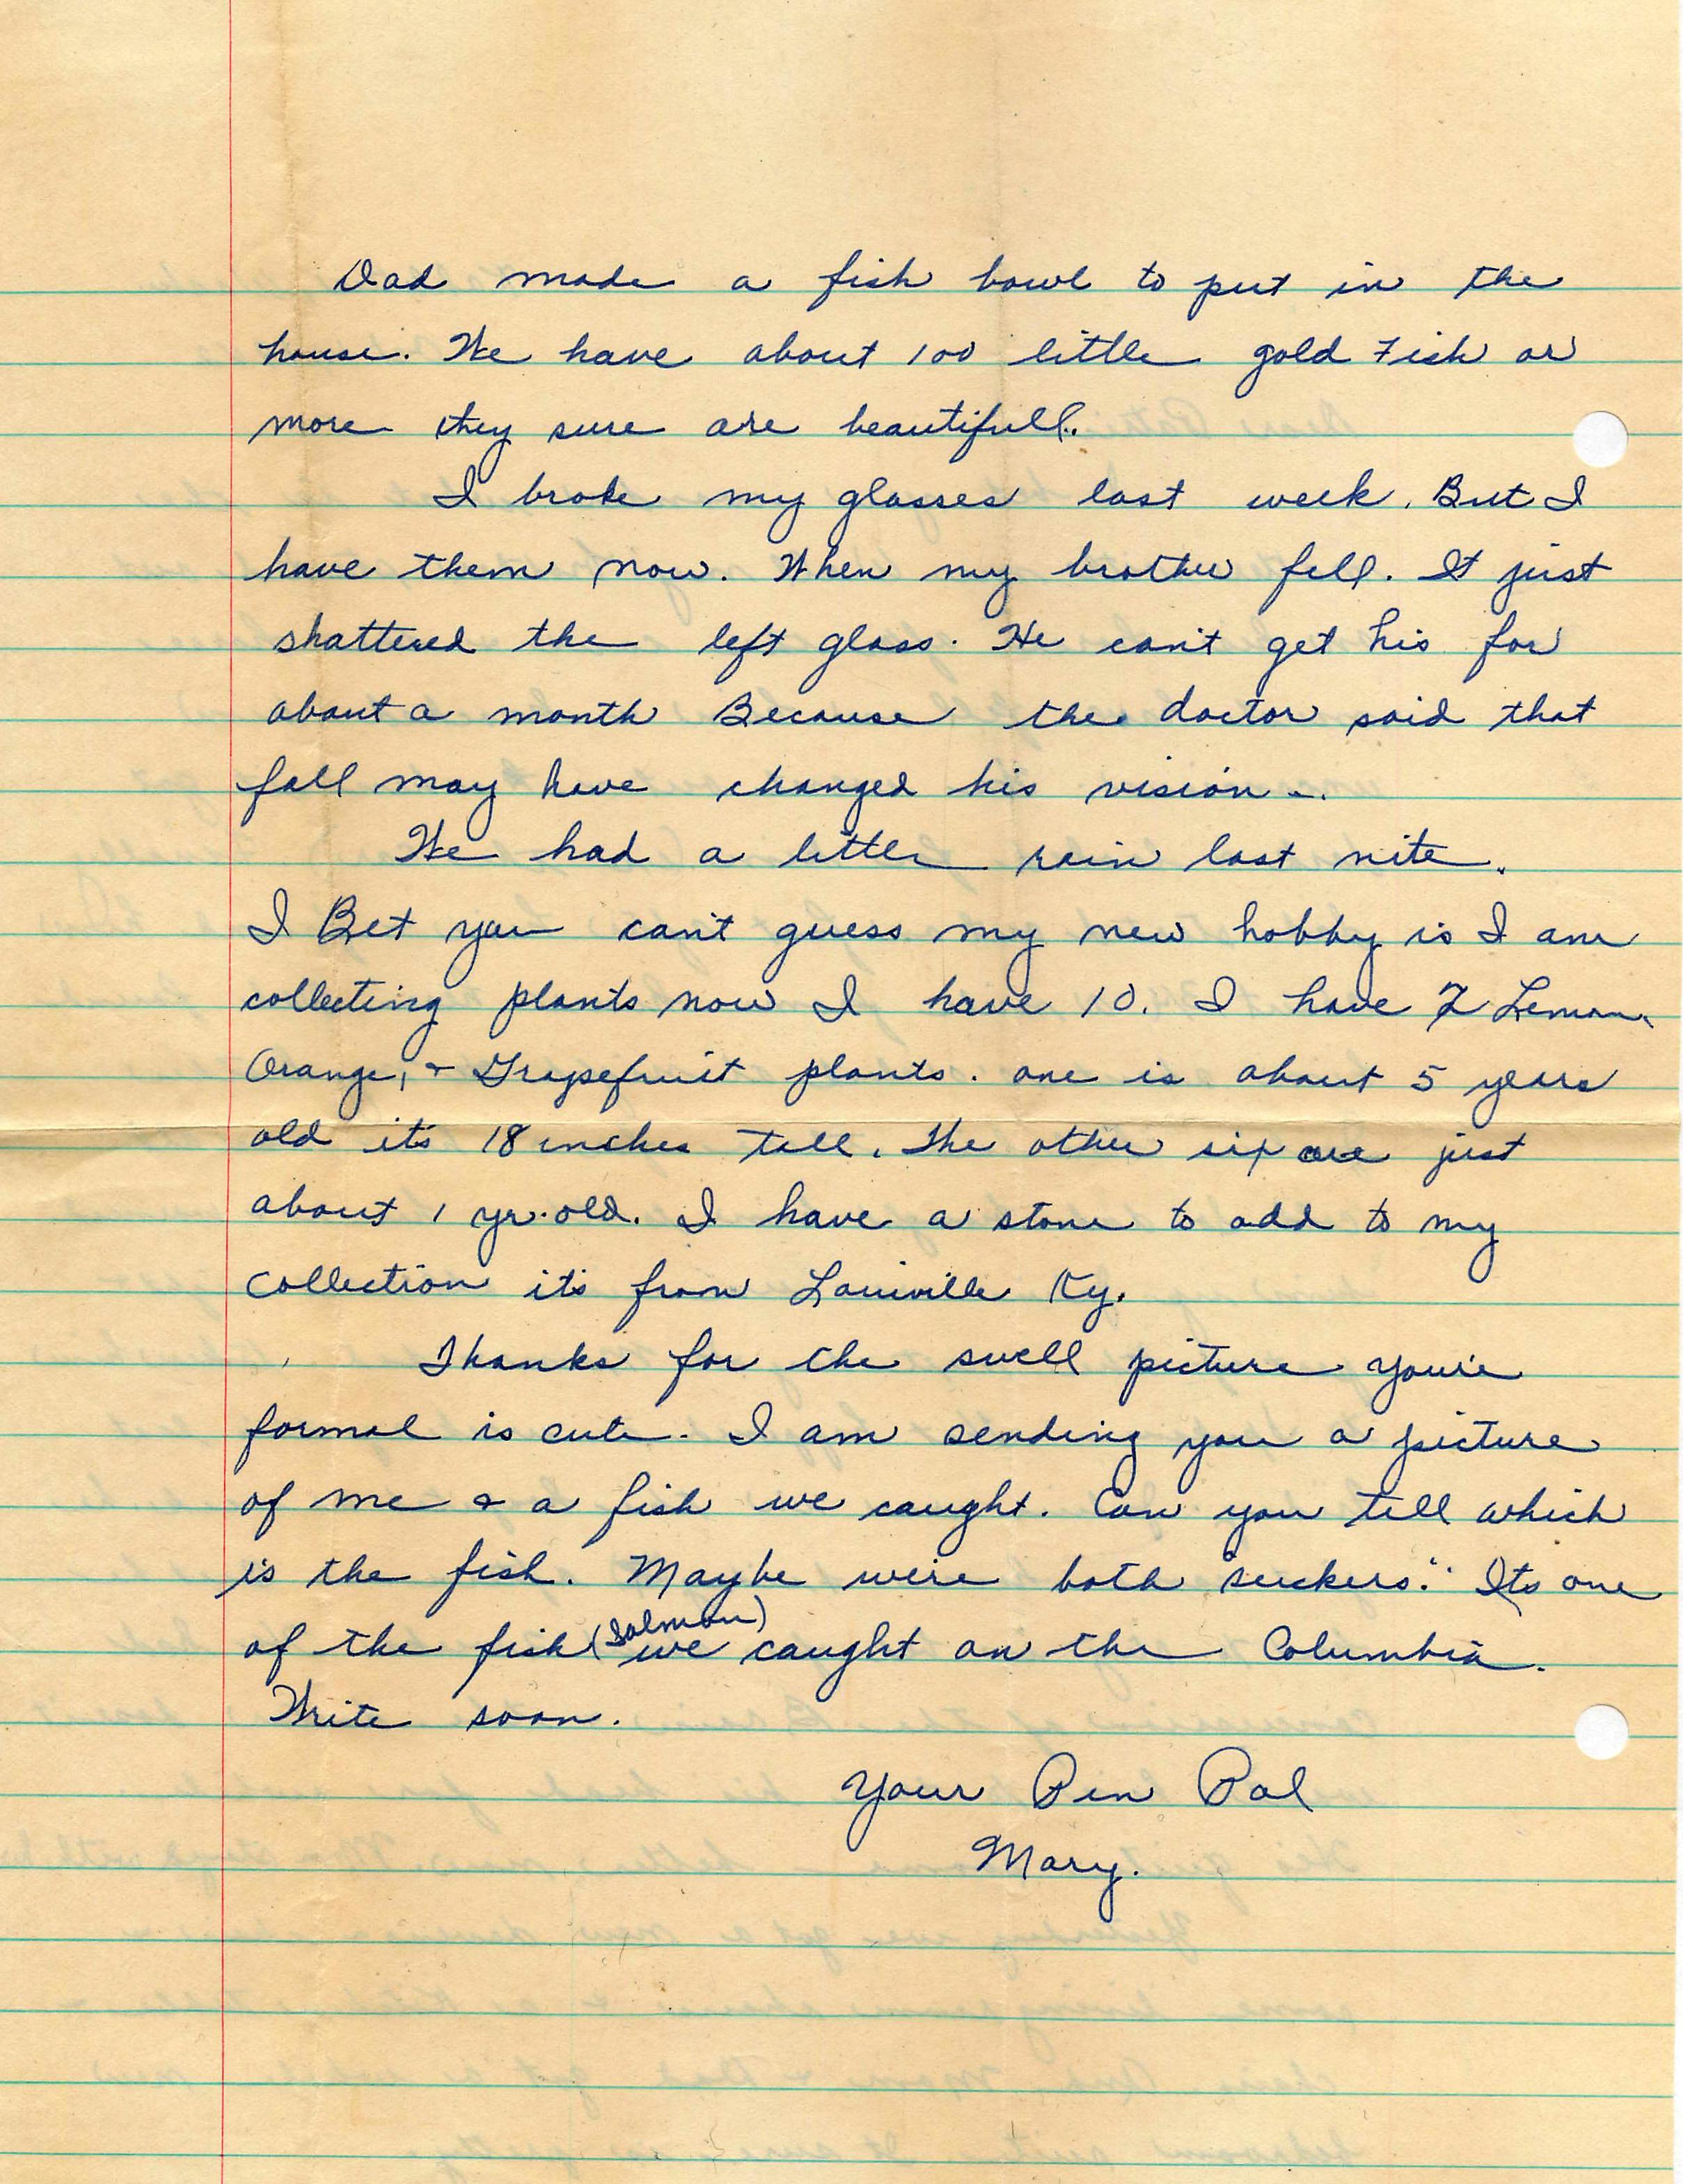 Dad made a fish bowl to put in the
house. We have about 100 little gold Fish or
more they sure are beautifull.
I broke my glasses last week. But I
have them now. When my brother fell. It just
shattered the left glass. He can't get his for
about a month Because the doctor said that
fall may have changed his vision.
We had a little rain last nite.
I Bet you can't guess my new hobby is I am
collecting plants now I have 10. I have 7 Lemon,
Orange, + Grapefruit plants. one is about 5 years
old it's 18 inches tall. The other six are just
about 1 yr. old. I have a stone to add to my
collection it's from Louiville Ky.
Thanks for the swell picture you're
formal is cute. I am sending you a picture
of me & a fish we caught. Can you tell which
is the fish. Maybe we're both suckers." Its one
of the fish (Salmon) we caught on the Columbia.
Write soon.
Your Pen Pal
Mary.